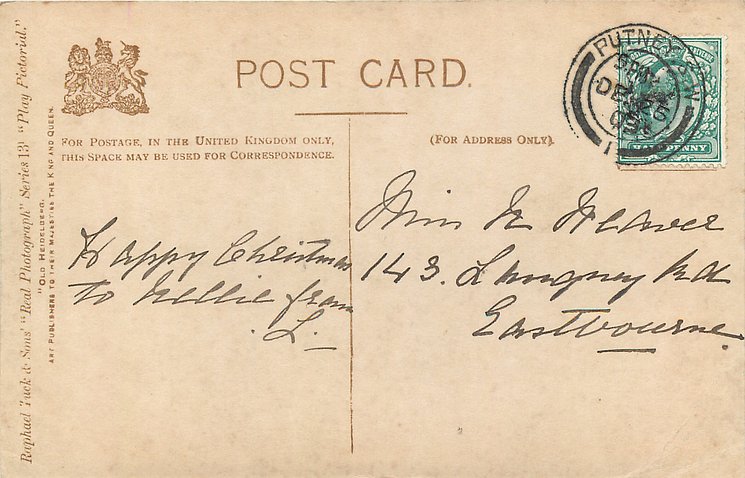 POST CARD.
FOR POSTAGE, IN THE UNITED KINGDOM ONLY,
THIS SPACE MAY BE USED FOR CORRESPONDENCE.
(FOR ADDRESS ONLY).
Happy Christmas
to Nellie from
L.
Miss N Weaver
143. Langney Rd
Eastbourne.
PUTNEY S.W.
HALFPENNY
Raphael Tuck & Sons' "Real Photograph" Series 131 "Play Pictorial."
"OLD HEIDELBERG.
ART PUBLISHERS TO THEIR MAJESTIES THE KING AND QUEEN.